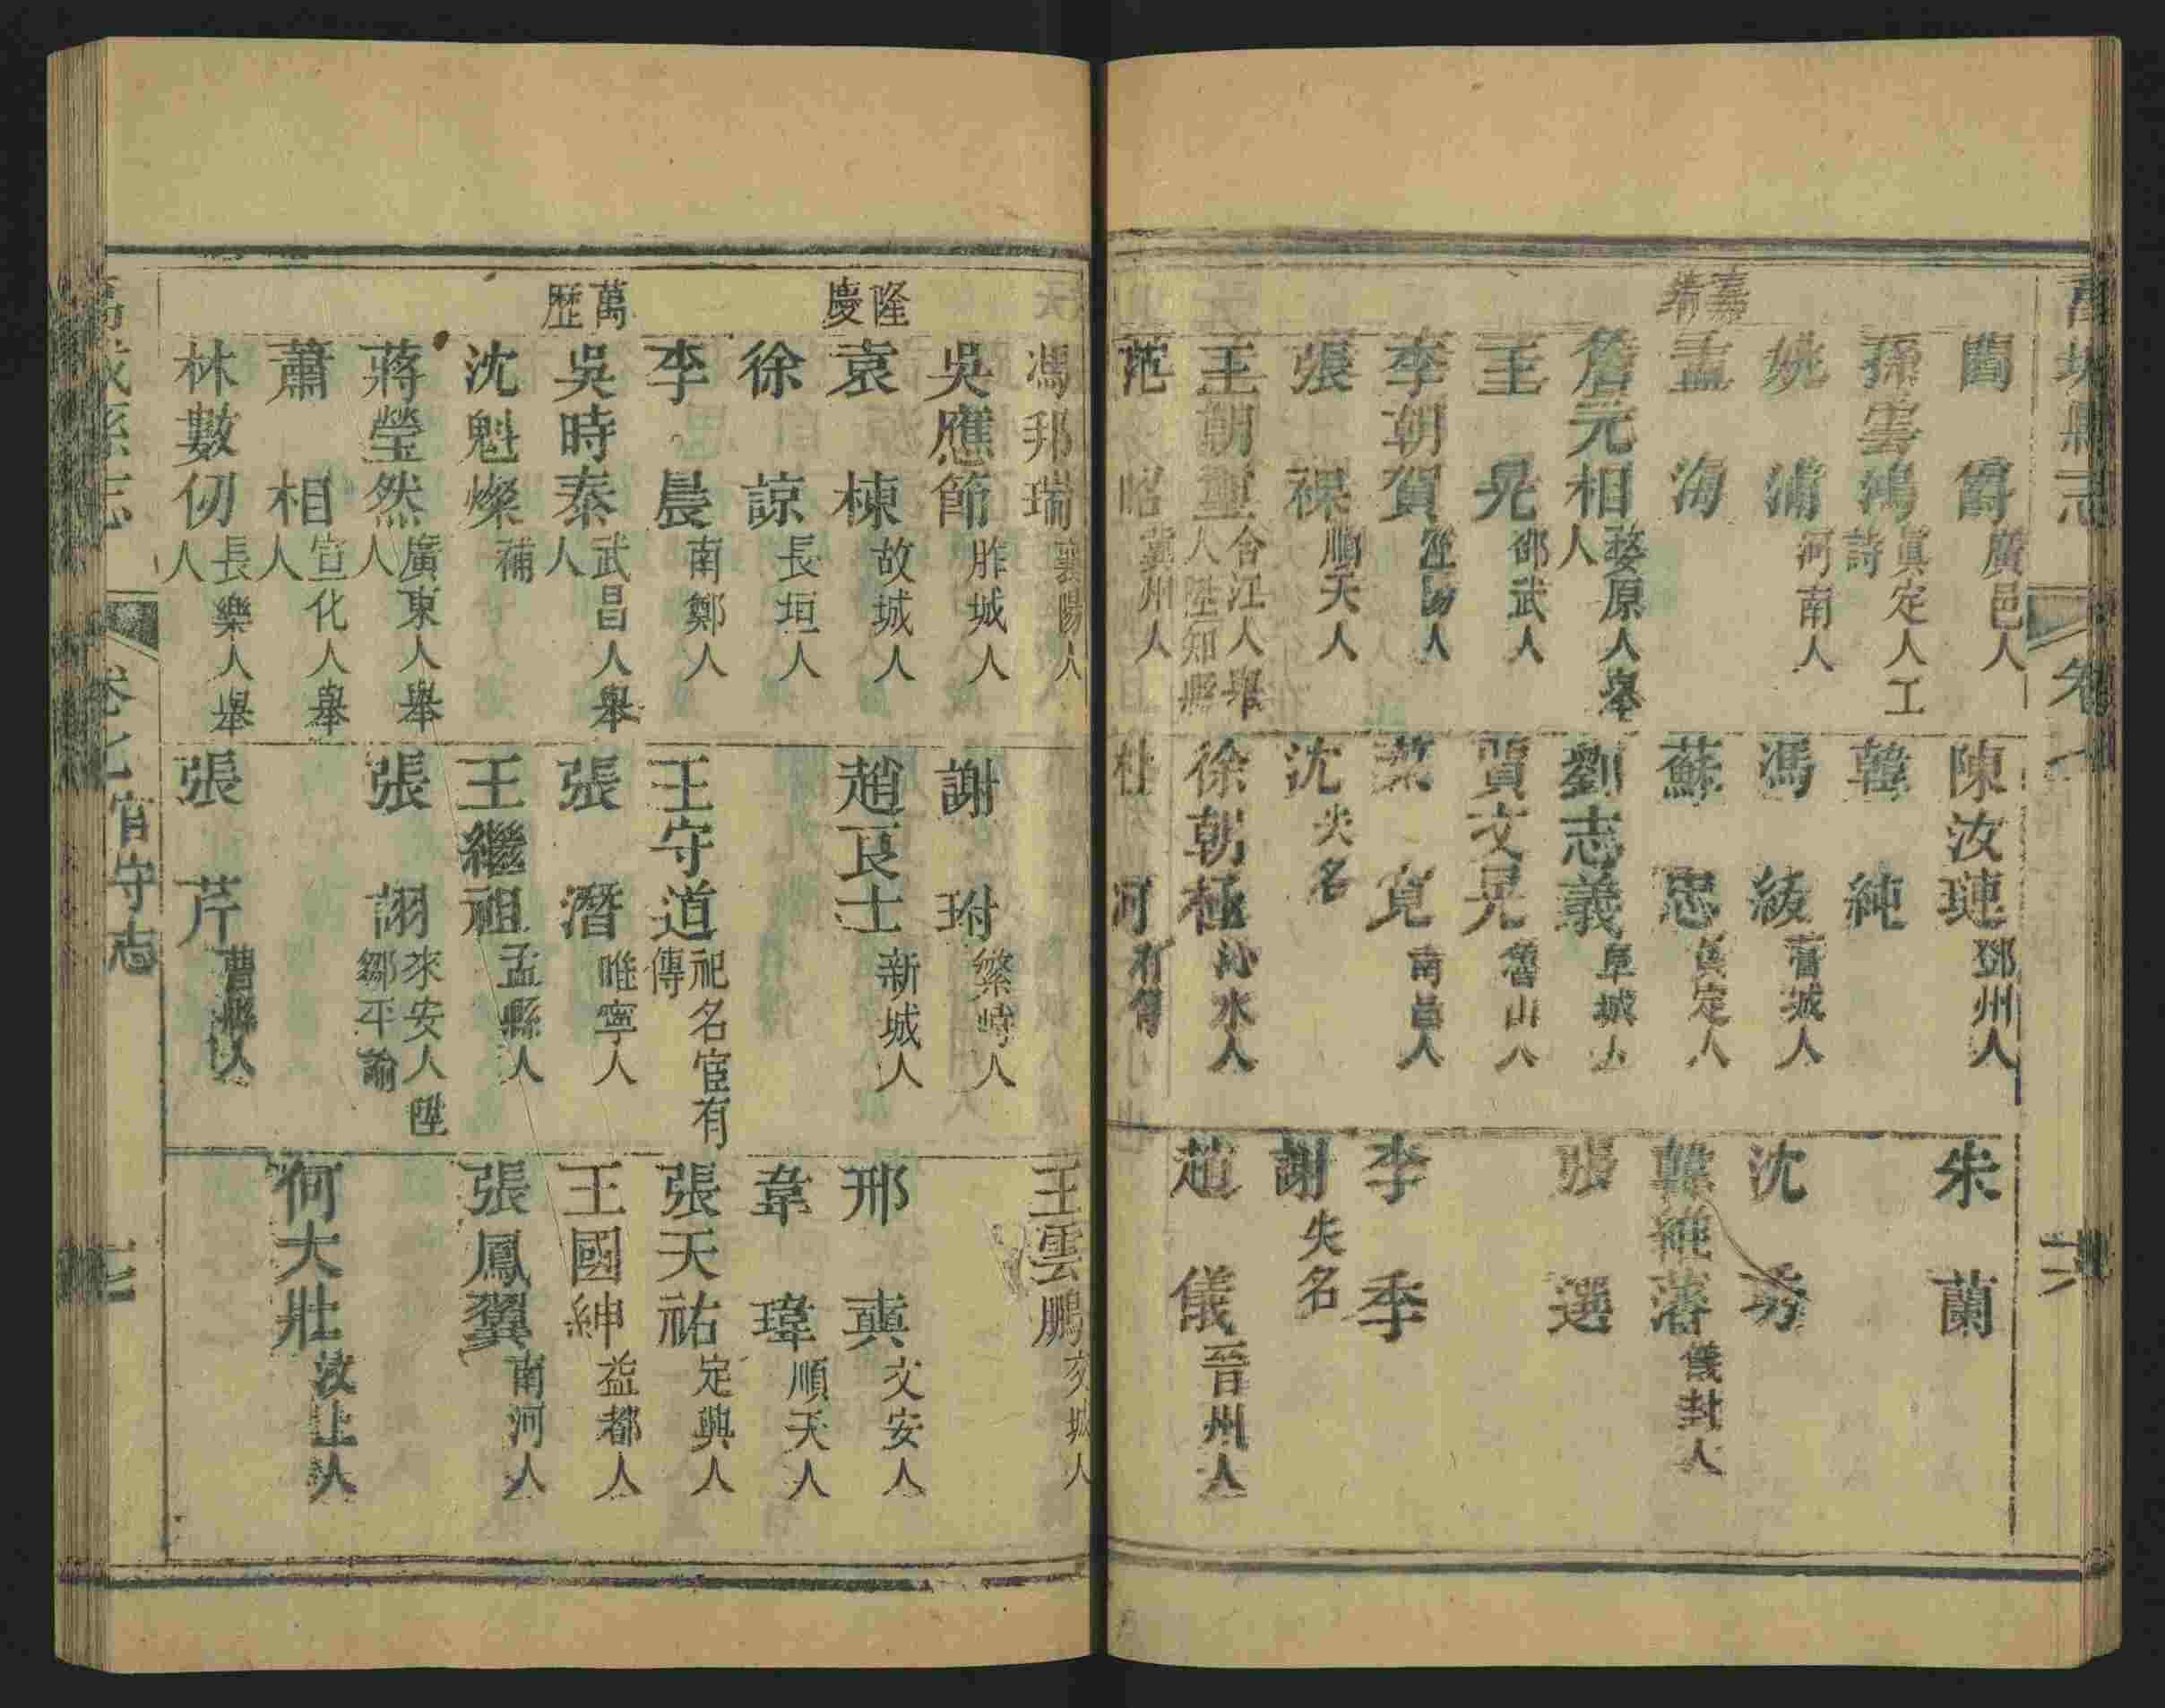 閻爵 廣邑人
孫雲鴻 真定人工詩
姚浦 河南人
嘉靖
孟海
詹元相 婺原人舉人
王晃 邵武人
李朝賀 人
張祼 順天人
王朝璽 合江人舉人陞知縣
范昭 冀州人
陳汝璉 鄧州人
韓純
馮綾 城人
蘇忠 真定人
劉志義 阜城人
賈文晃 魯山人
葉寬 南昌人
沈 失名
徐朝極 沁水人
杜河
朱蘭
沈秀
韓維藩 儀封人
張選
李季
謝 失名
趙儀 晉州人
馮邦瑞 襄陽人
吳應節 胙城人
隆慶
袁棟 故城人
徐諒 長垣人
李晨 南鄭人
萬歷
吳時泰 武昌人舉人
沈魁燦 補
蔣瑩然 廣東人舉人
蕭相 宣化人舉人
林數仞 長樂人舉人
謝珘 繁峙人
趙良士 新城人
王守道 祀名宦有傳
張潛 睢寧人
王繼祖 孟縣人
張詡 來安人陞鄒平諭
張芹 曹縣人
王雲鵬 交城人
邢真 文安人
韋瑋 順天人
張天祐 定興人
王國紳 益都人
張鳳翼 南河人
何大壯 汶上人
卷七官守志
十七